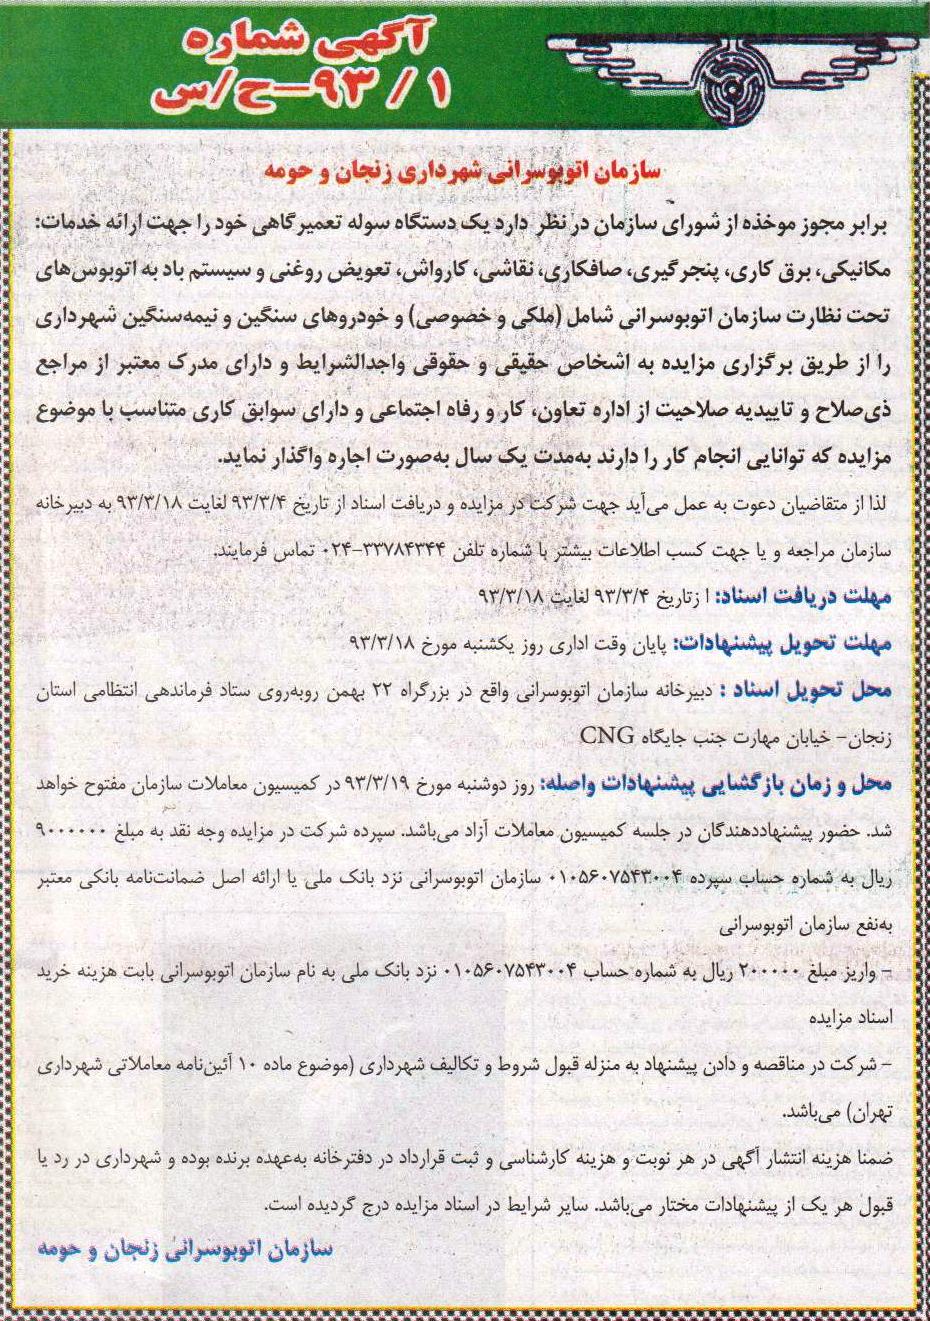 آگهی شماره
۱ / ۹۳-ح/س
سازمان اتوبوسرانی شهرداری زنجان و حومه
برابر مجوز موخذه از شورای سازمان در نظر دارد یک دستگاه سوله تعمیرگاهی خود را جهت ارائه خدمات:
مکانیکی، برق کاری، پنجرگیری، صافکاری، نقاشی، کارواش، تعویض روغنی و سیستم باد به اتوبوس‌های
تحت نظارت سازمان اتوبوسرانی شامل (ملکی و خصوصی) و خودروهای سنگین و نیمه‌سنگین شهرداری
را از طریق برگزاری مزایده به اشخاص حقیقی و حقوقی واجدالشرایط و دارای مدرک معتبر از مراجع
ذی‌صلاح و تاییدیه صلاحیت از اداره تعاون، کار و رفاه اجتماعی و دارای سوابق کاری متناسب با موضوع
مزایده که توانایی انجام کار را دارند به‌مدت یک سال به‌صورت اجاره واگذار نماید.
لذا از متقاضیان دعوت به عمل می‌آید جهت شرکت در مزایده و دریافت اسناد از تاریخ ۹۳/۳/۴ لغایت ۹۳/۳/۱۸ به دبیرخانه
سازمان مراجعه و یا جهت کسب اطلاعات بیشتر با شماره تلفن ۳۳۷۸۴۳۴۴-۰۲۴ تماس فرمایند.
مهلت دریافت اسناد: ا زتاریخ ۹۳/۳/۴ لغایت ۹۳/۳/۱۸
مهلت تحویل پیشنهادات: پایان وقت اداری روز یکشنبه مورخ ۹۳/۳/۱۸
محل تحویل اسناد : دبیرخانه سازمان اتوبوسرانی واقع در بزرگراه ۲۲ بهمن روبه‌روی ستاد فرماندهی انتظامی استان
زنجان- خیابان مهارت جنب جایگاه CNG
محل و زمان بازگشایی پیشنهادات واصله: روز دوشنبه مورخ ۹۳/۳/۱۹ در کمیسیون معاملات سازمان مفتوح خواهد
شد. حضور پیشنهاددهندگان در جلسه کمیسیون معاملات آزاد می‌باشد. سپرده شرکت در مزایده وجه نقد به مبلغ ۹۰۰۰۰۰۰
ریال به شماره حساب سپرده ۰۱۰۵۶۰۷۵۴۳۰۰۴ سازمان اتوبوسرانی نزد بانک ملی یا ارائه اصل ضمانت‌نامه بانکی معتبر
به‌نفع سازمان اتوبوسرانی
- واریز مبلغ ۲۰۰۰۰۰ ریال به شماره حساب ۰۱۰۵۶۰۷۵۴۳۰۰۴ نزد بانک ملی به نام سازمان اتوبوسرانی بابت هزینه خرید
اسناد مزایده
- شرکت در مناقصه و دادن پیشنهاد به منزله قبول شروط و تکالیف شهرداری (موضوع ماده ۱۰ آئین‌نامه معاملاتی شهرداری
تهران) می‌باشد.
ضمنا هزینه انتشار آگهی در هر نوبت و هزینه کارشناسی و ثبت قرارداد در دفترخانه به‌عهده برنده بوده و شهرداری در رد یا
قبول هر یک از پیشنهادات مختار می‌باشد. سایر شرایط در اسناد مزایده درج گردیده است.
سازمان اتوبوسرانی زنجان و حومه